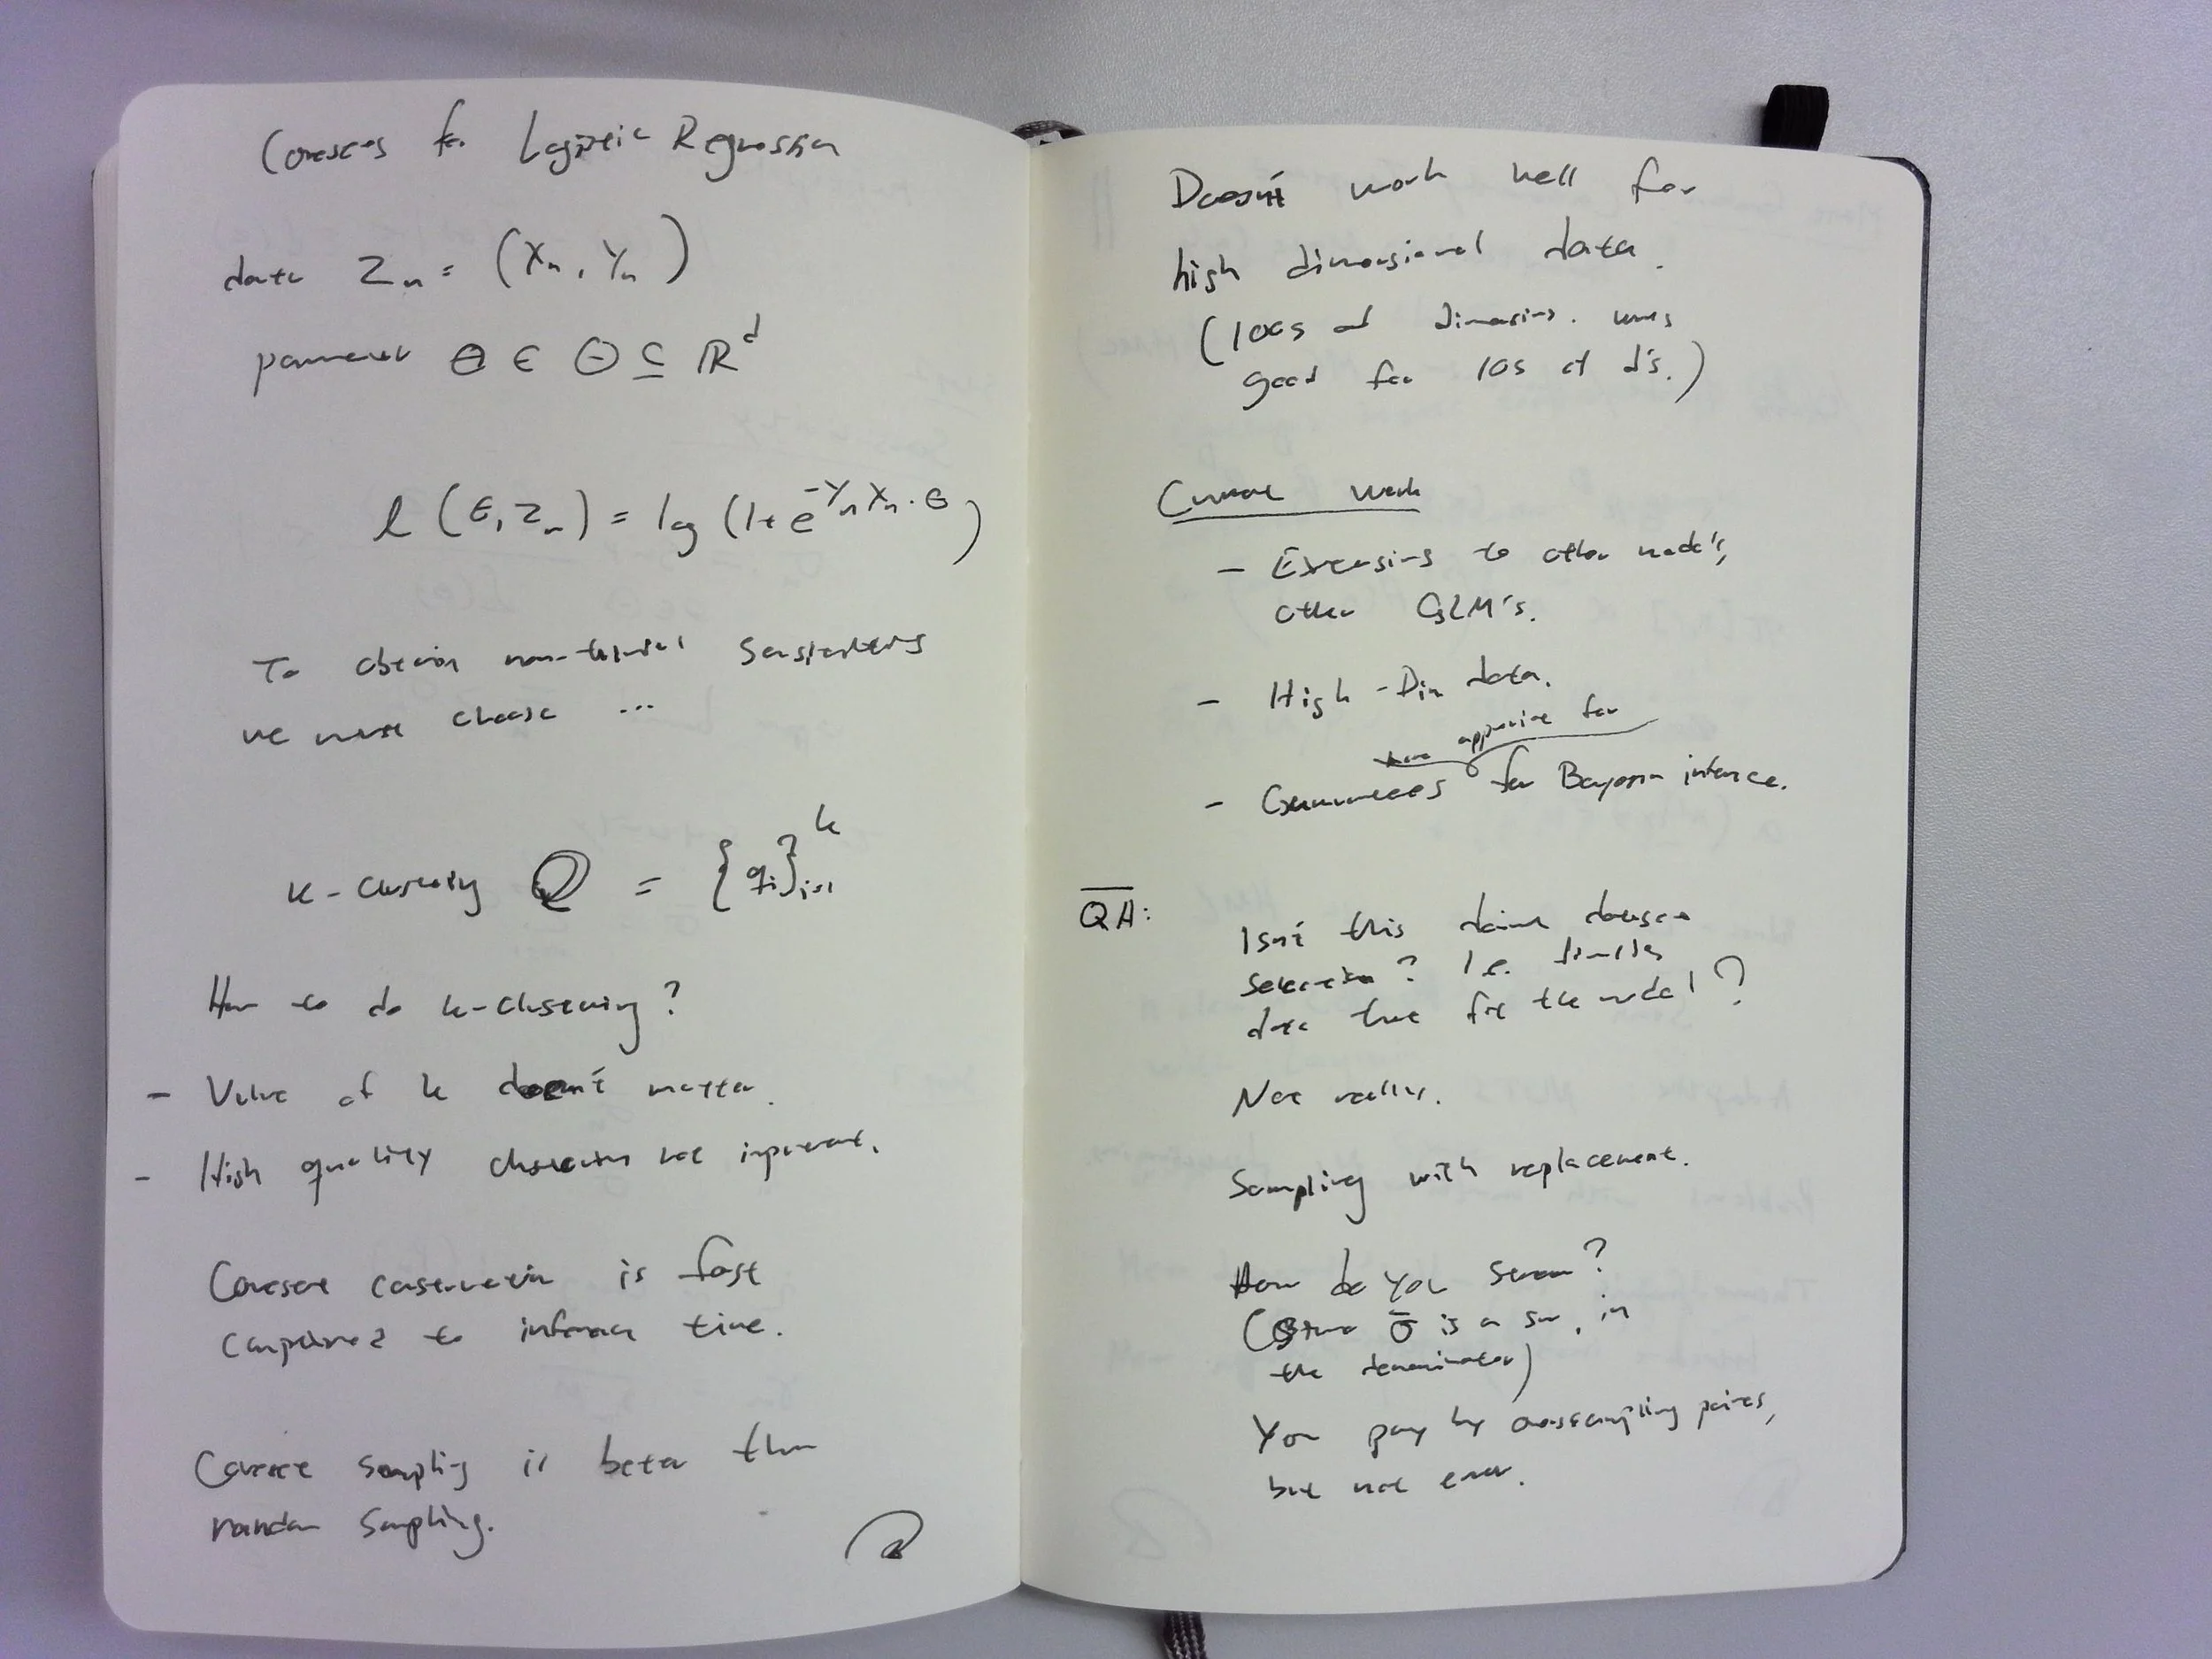 Coresets for Logistic Regression
data Zn = (Xn, Yn)
parameter θ ∈ Θ ⊆ ℝ^d
ℓ(θ, Zn) = log (1 + e^{-Yn Xn · θ})
To obtain non-trivial sensitivities
we must choose ...
k-clustering Q = {qi}_{i=1}^k
How to do k-clustering?
- Value of k doesn't matter.
- High quality clustering not important.
Coreset construction is fast
compared to inference time.
Coreset sampling is better than
random sampling.
Doesn't work well for
high dimensional data.
(100s of dimensions. works
good for 10s of d's.)
Current work
- Extensions to other models,
other GLM's.
- High-Dim data.
appropriate for
- Guarantees for Bayesian inference.
QA:
Isn't this doing dataset
selection? I.e. finding
data that fit the model?
Not really.
Sampling with replacement.
How do you stream?
(Since σ̄ is a sum, in
the denominator)
You pay by oversampling points,
but not error.